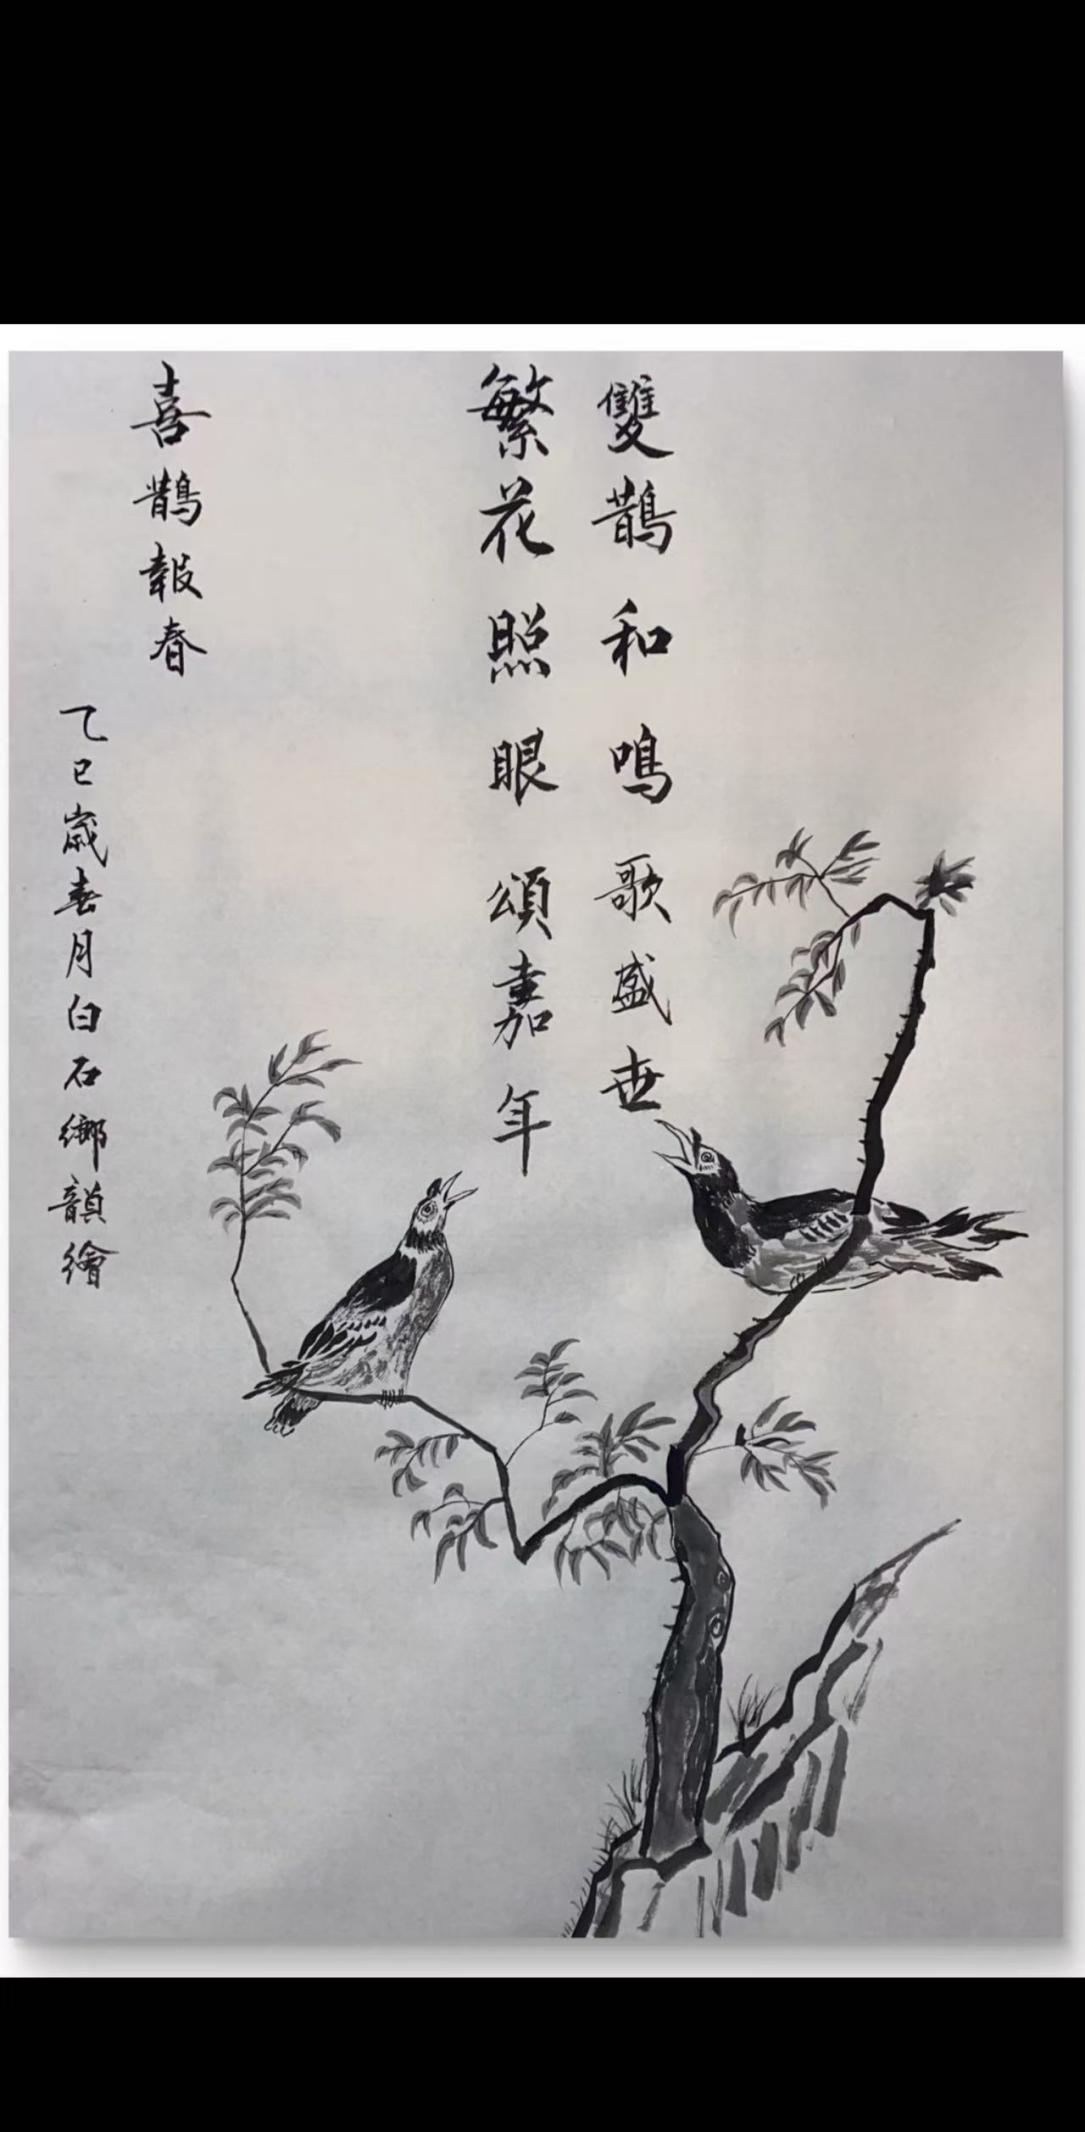 雙鵲和鳴歌盛世
繁花照眼頌嘉年
喜鵲報春
乙巳歲春月白石鄉韻繪